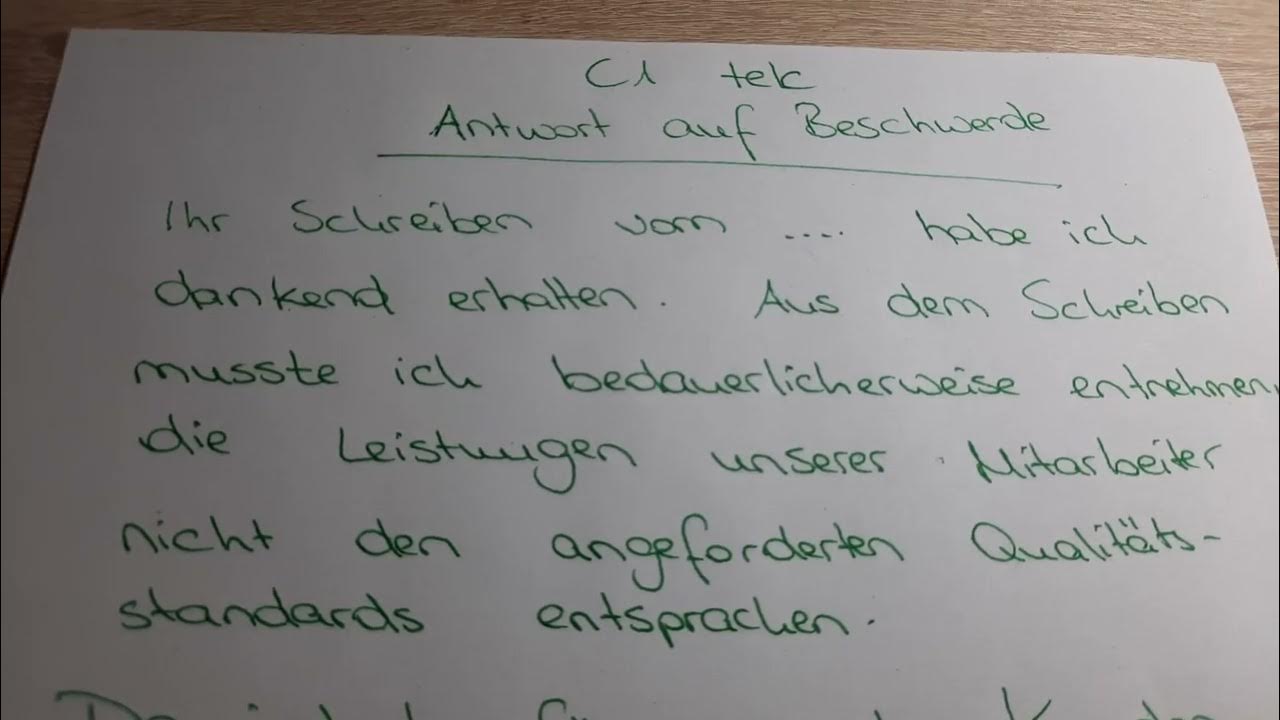 C1 telc
Antwort auf Beschwerde
Ihr Schreiben vom .... habe ich
dankend erhalten. Aus dem Schreiben
musste ich bedauerlicherweise entnehmen,
die Leistungen unserer Mitarbeiter
nicht den angeforderten Qualitäts-
standards entsprachen.